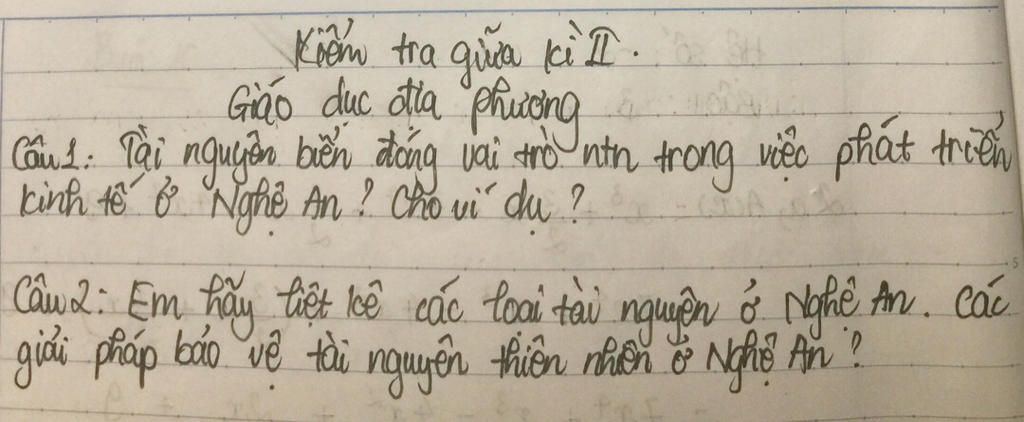 Kiểm tra giữa kì II.
Giáo dục địa phương
Câu 1: Tài nguyên biển đóng vai trò ntn trong việc phát triển
kinh tế ở Nghệ An? Cho ví dụ?
Câu 2: Em hãy liệt kê các loại tài nguyên ở Nghệ An. Các
giải pháp bảo vệ tài nguyên thiên nhiên ở Nghệ An?